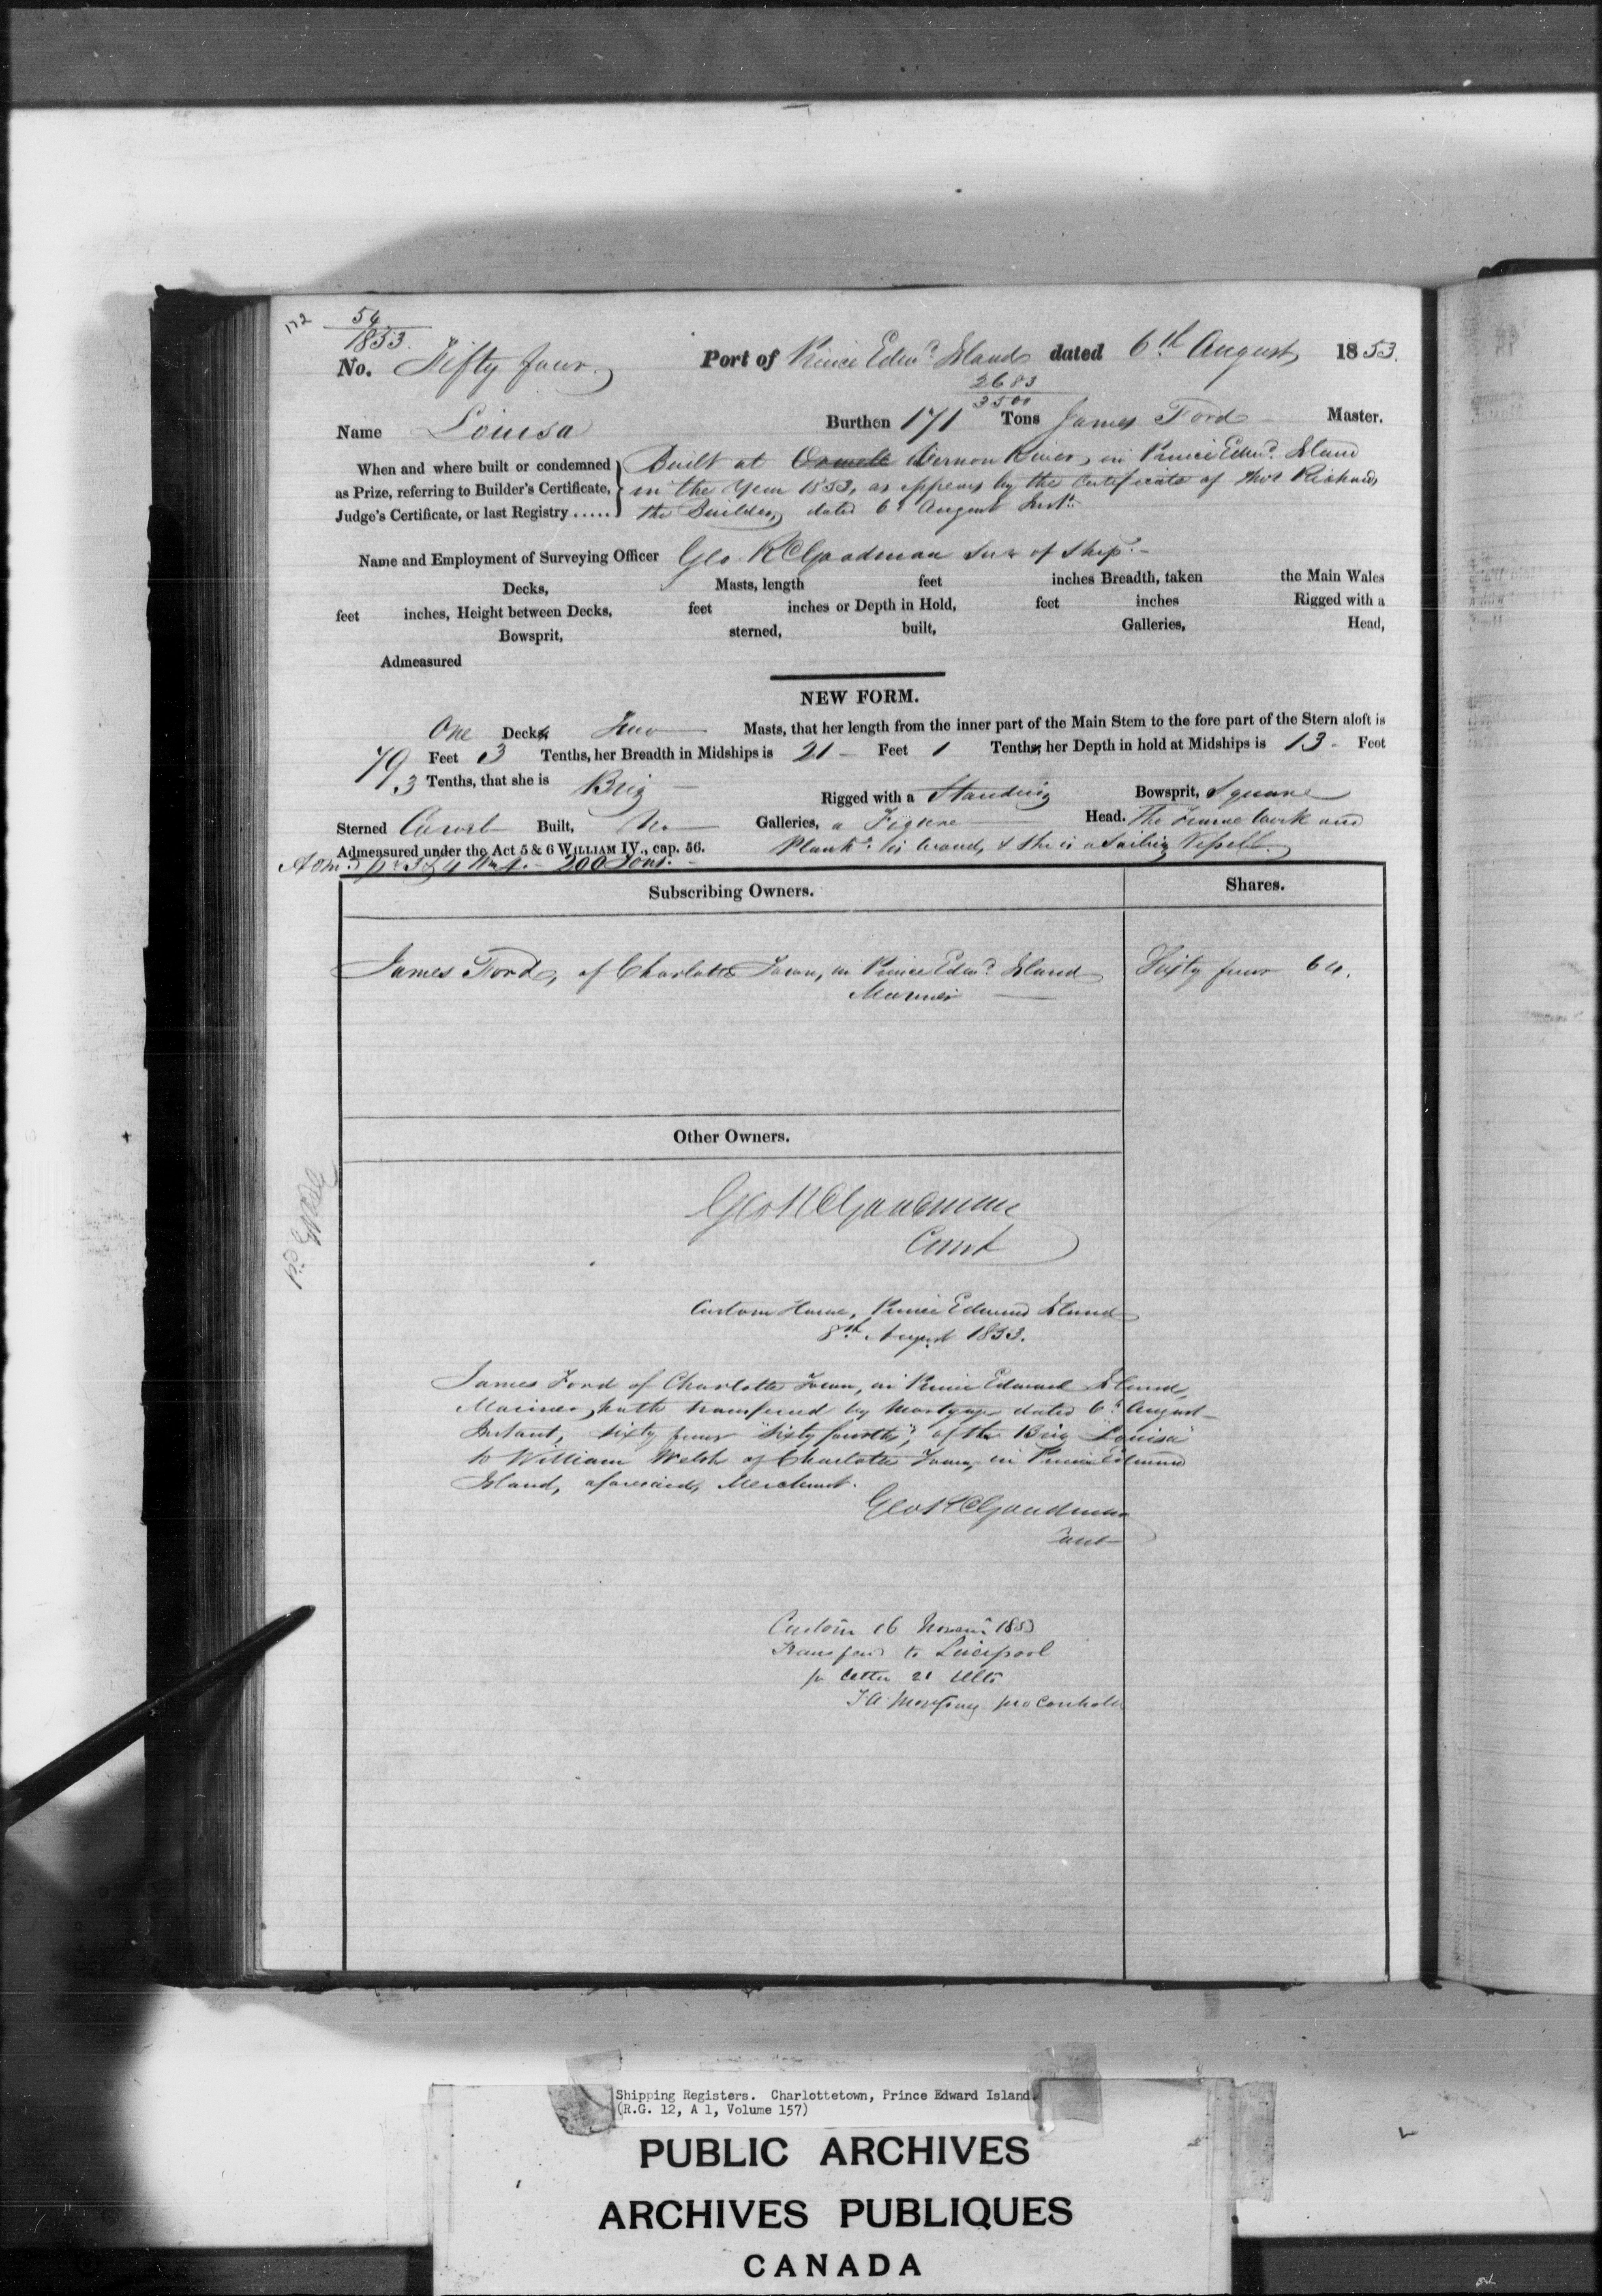 172
54
1853.
No. Fifty four. Port of Prince Edwd. Island dated 6th August 1853.
2683
3500
Name Louisa Burthen 171 Tons James Ford Master.
When and where built or condemned Built at Orwell Vernon River, in Prince Edwd. Island
as Prize, referring to Builder's Certificate, in the Year 1853, as appears by the Certificate of Thos Richards
Judge's Certificate, or last Registry..... the Builder, dated 6th August Inst.
Name and Employment of Surveying Officer Geo. R C Goodman Surr of Shipg.
Decks, Masts, length feet inches Breadth, taken the Main Wales
feet inches, Height between Decks, feet inches or Depth in Hold, feet inches Rigged with a
Bowsprit, sterned, built, Galleries, Head,
Admeasured
NEW FORM.
One Decks Two Masts, that her length from the inner part of the Main Stem to the fore part of the Stern aloft is
79 Feet 3 Tenths, her Breadth in Midships is 21 Feet 1 Tenths, her Depth in hold at Midships is 13 Feet
3 Tenths, that she is Brig Rigged with a Standing Bowsprit, Square
Sterned Carvel Built, No Galleries, a Figure Head. The Frame Work and
Admeasured under the Act 5 & 6 WILLIAM IV., cap. 56. Plankg. is wood, & she is a Sailing Vessell.
200 Tons.
Subscribing Owners. Shares.
James Ford, of Charlotte Town, in Prince Edwd. Island Sixty four 64.
Mariner
Other Owners.
Geo R C Goodman
Comt
Custom House, Prince Edward Island
8th August 1853.
James Ford of Charlotte Town, in Prince Edward Island,
Mariner, hath transferred by Mortgage dated 6th August
Instant, Sixty four "Sixty fourths", of the Brig "Louisa"
to William Welsh of Charlotte Town, in Prince Edward
Island, aforesaid, Merchant.
Geo R C Goodman
Comt
Custom 16 Novem 1853
Transferd to Liverpool
pr letter 21 Ulto
pro Controller
Shipping Registers. Charlottetown, Prince Edward Island.
(R.G. 12, A 1, Volume 157)
PUBLIC ARCHIVES
ARCHIVES PUBLIQUES
CANADA